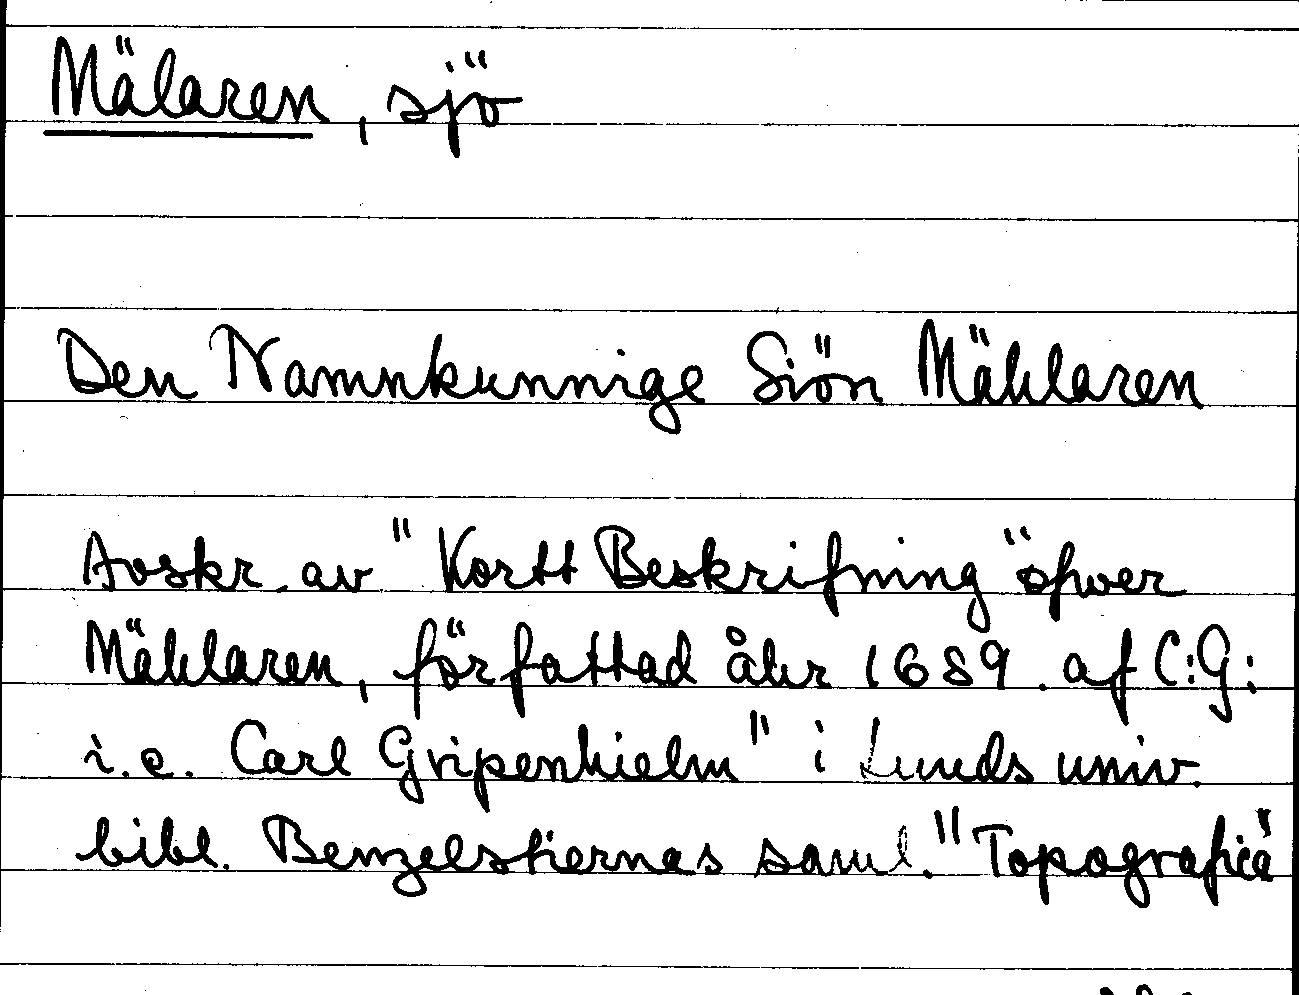 Mälaren, sjö
Den Namnkunnige Siön Mählaren
Avskr. av "Kortt Beskrifning öfwer
Mählaren, författad åhr 1689. af C:G:
i.e. Carl Gripenhielm" i Lunds univ.
bibl. Benzelstiernas saml. "Topografica"